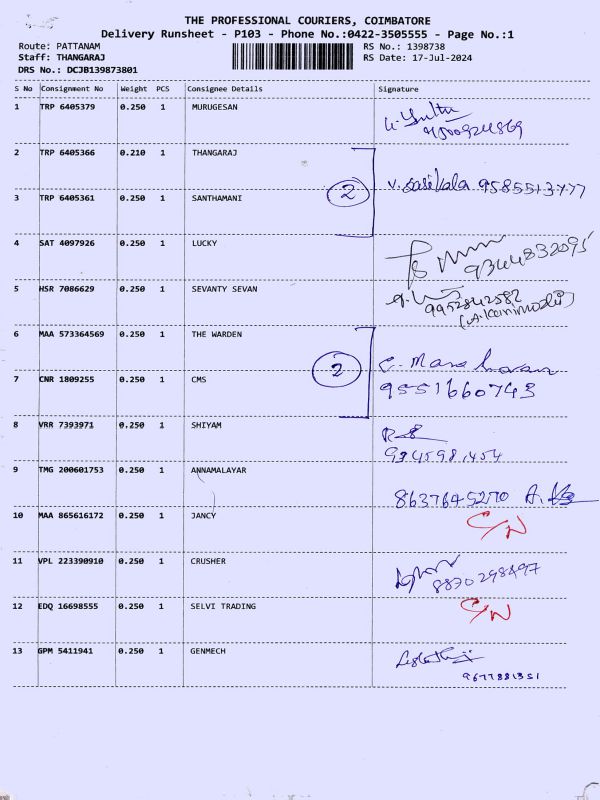 THE PROFESSIONAL COURIERS, COIMBATORE
Delivery Runsheet - P103 - Phone No.:0422-3505555 - Page No.:1
Route: PATTANAM RS No.: 1398738
Staff: THANGARAJ RS Date: 17-Jul-2024
DRS No.: DCJB139873801
S No Consignment No Weight PCS Consignee Details Signature
1 TRP 6405379 0.250 1 MURUGESAN
2 TRP 6405366 0.210 1 THANGARAJ
2 V. Sasikala 9585513777
3 TRP 6405361 0.250 1 SANTHAMANI
4 SAT 4097926 0.250 1 LUCKY
9344832095
5 HSR 7086629 0.250 1 SEVANTY SEVAN
9952842582
6 MAA 573364569 0.250 1 THE WARDEN
2
7 CNR 1809255 0.250 1 CMS
9551660743
8 VRR 7393971 0.250 1 SHIYAM
9 TMG 200601753 0.250 1 ANNAMALAYAR
8637645270
10 MAA 865616172 0.250 1 JANCY
C/N
11 VPL 223390910 0.250 1 CRUSHER
8870298497
12 EDQ 16698555 0.250 1 SELVI TRADING
C/N
13 GPM 5411941 0.250 1 GENMECH
9677881351